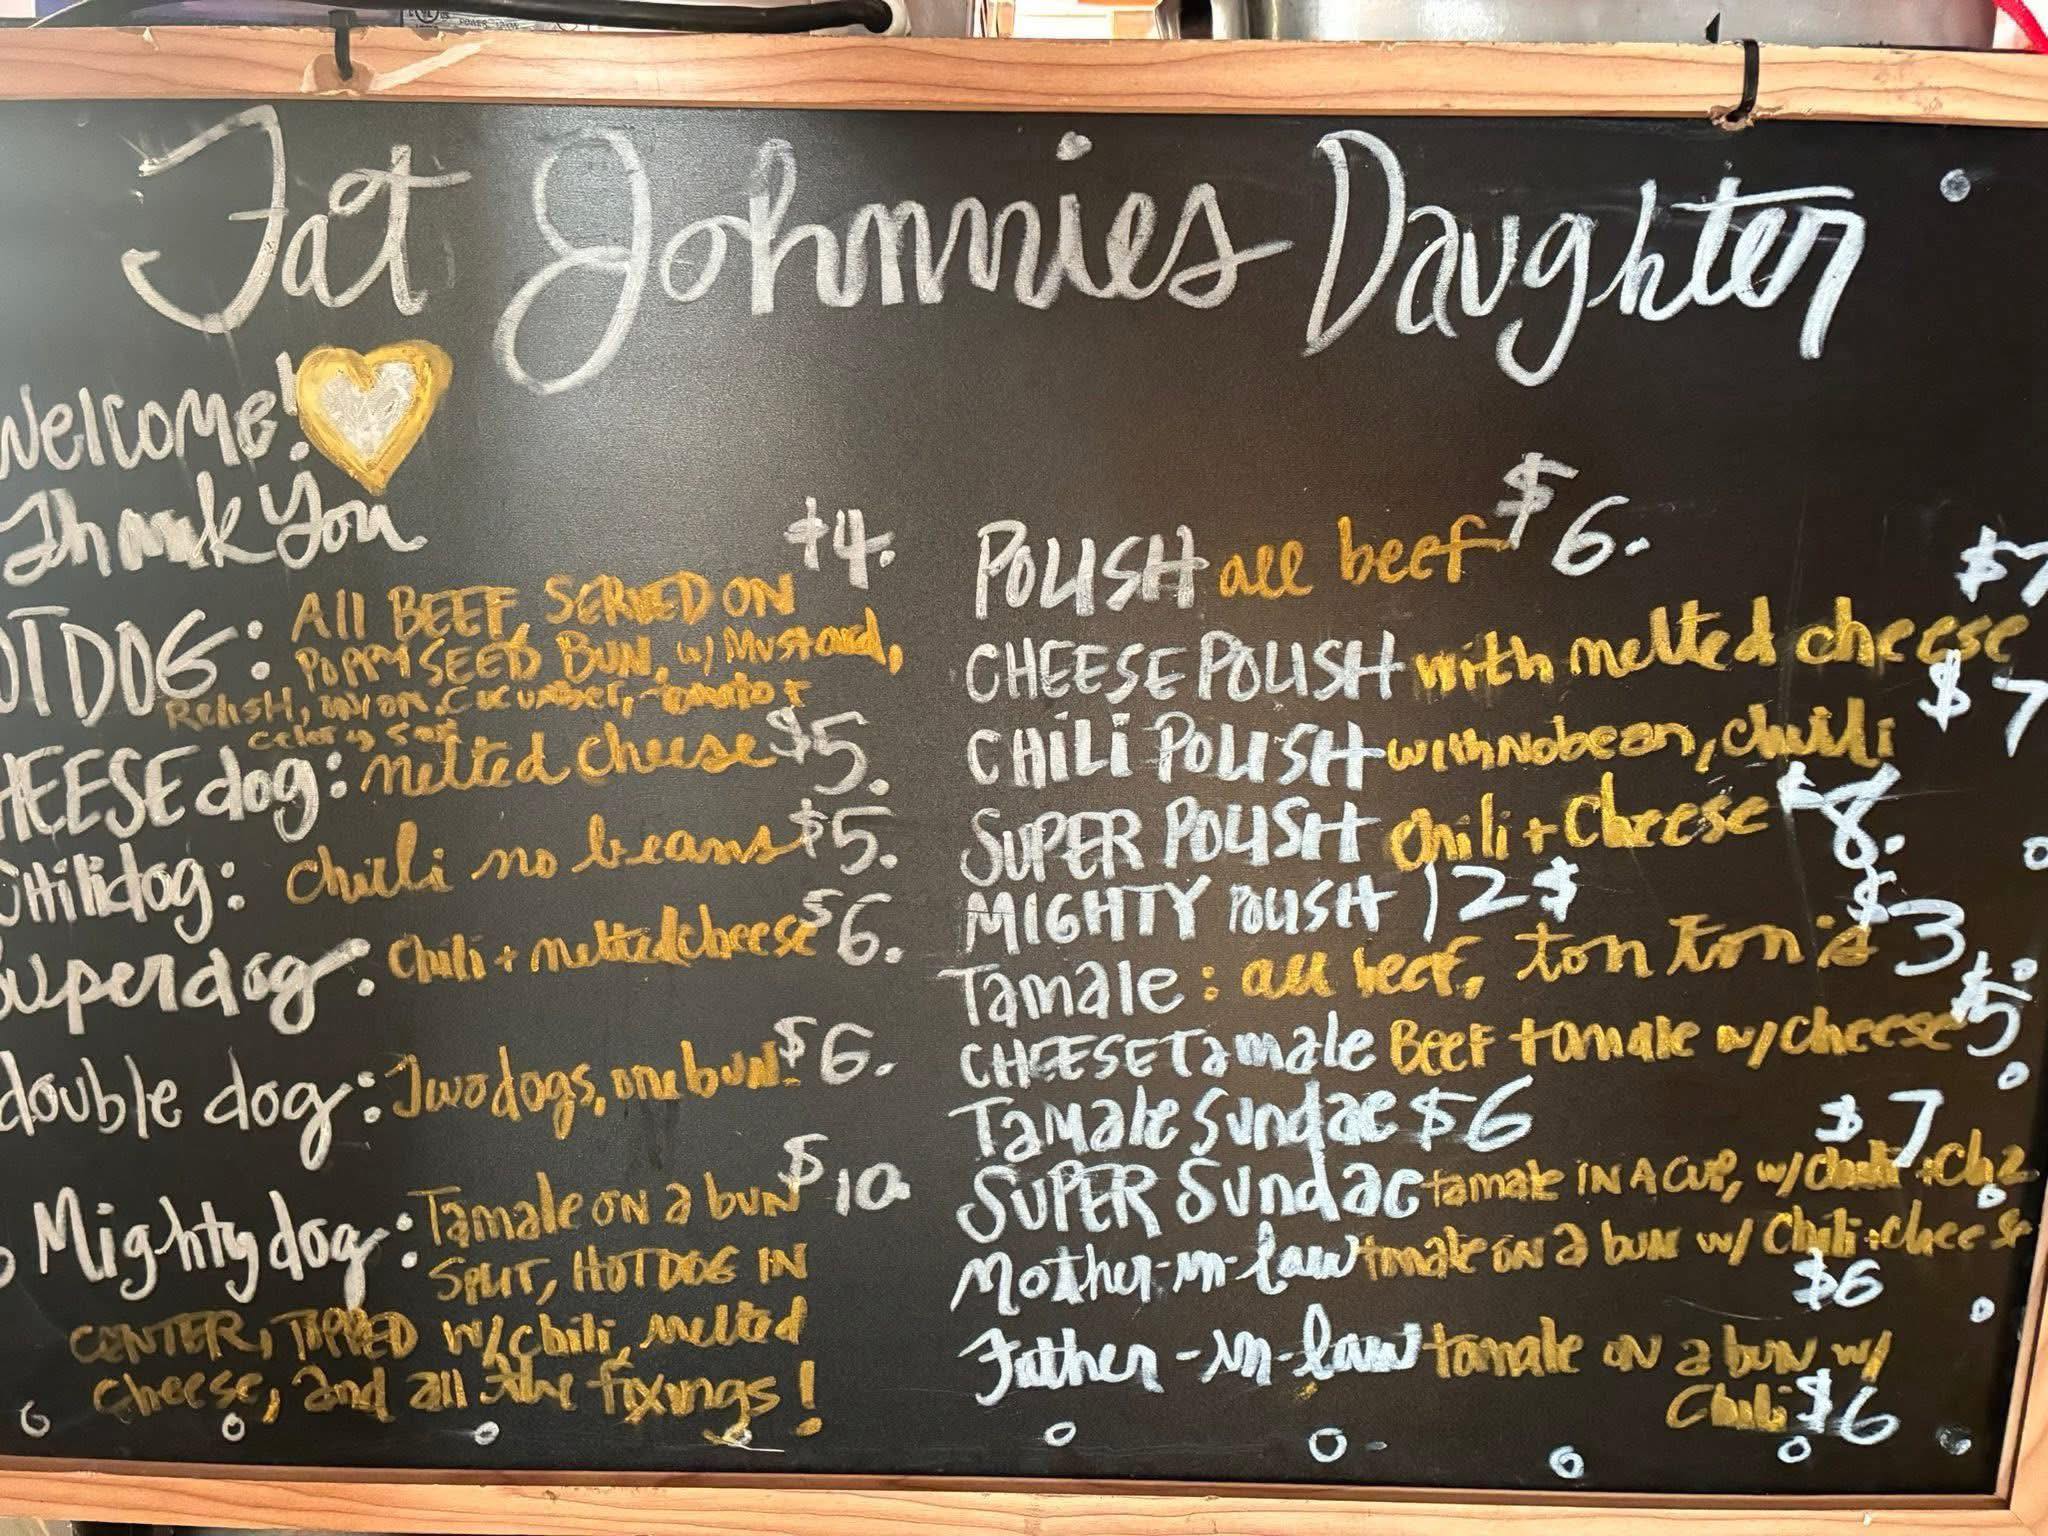 Fat Johnnies Daughter
Welcome!
Thank You
$4.
OTDOG: All BEEF, SERVED ON
POPPYSEED BUN, w/ Mustard,
RELISH, ONION, CUCUMBER, tomato +
Celery Salt
HEESE dog: melted cheese $5.
Chilidog: chili no beans $5.
Superdog: chili + melted cheese $6.
double dog: Two dogs, one bun. $6.
Mightydog: Tamale ON a bun $10
SPLIT, HOTDOG IN
CENTER, TOPPED w/ chili, melted
cheese, and all the fixings!
POLISH all beef $6.
CHEESE POLISH with melted cheese $7
CHILI POLISH with no bean, chili $7
SUPER POLISH chili + cheese $8.
MIGHTY POLISH 12$
Tamale: all beef, tom tom's $3
CHEESE Tamale Beef tamale w/ cheese $5
Tamale Sundae $6
SUPER Sundae tamale IN A CUP, w/ chili + chz $7
Mother-in-law tmale ON a bun w/ chili + cheese
$6
Father-in-law tamale ON a bun w/
Chili $6